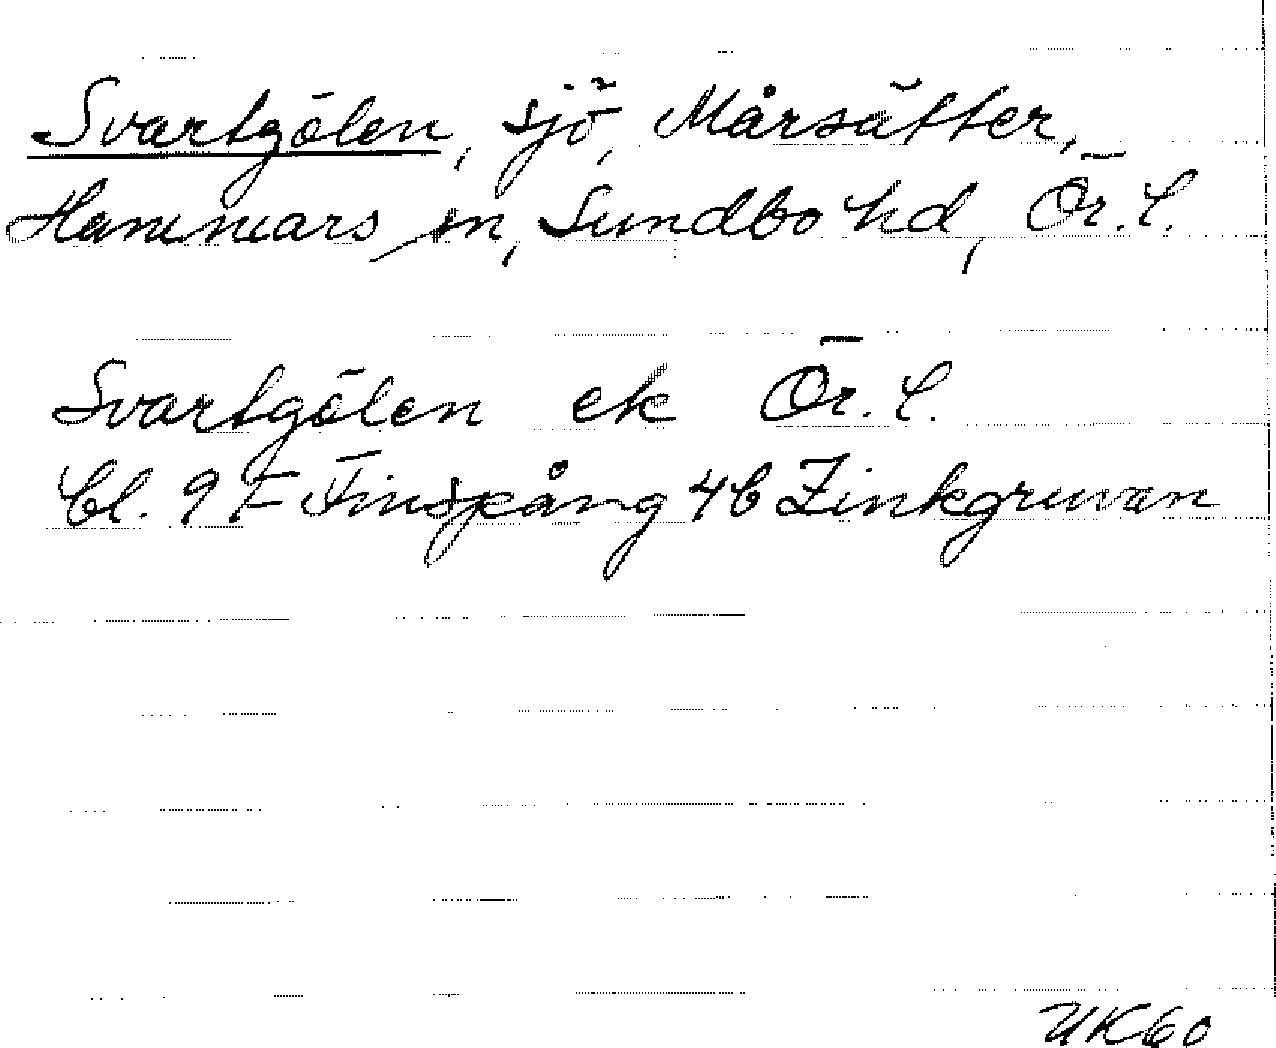 Svartgölen, sjö, Mårsätter,
Hammars sn, Sundbo hd, Ör. l.
Svartgölen ek Ör. l.
bl. 9 F Finspång 4b Zinkgruvan
UK60